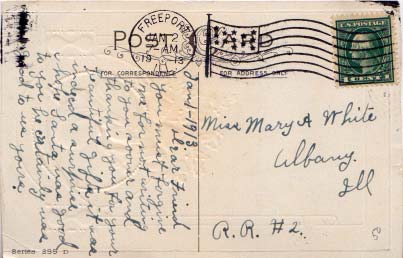 POST CARD
FREEPORT
JAN 2
7-AM
19 13
FOR CORRESPONDENCE
FOR ADDRESS ONLY
U.S. POSTAGE
1 CENT 1
Jan 1-1913.
Dear Friend
you must forgive
me for not writing
to you sooner and
thanking you for your
beautiful gift it was
indeed a surprise
I hope Santa was good
to you he certainly was
good to us yours.
Miss Mary A White
Albany.
Ill
R.R. #2.
Series 399 D